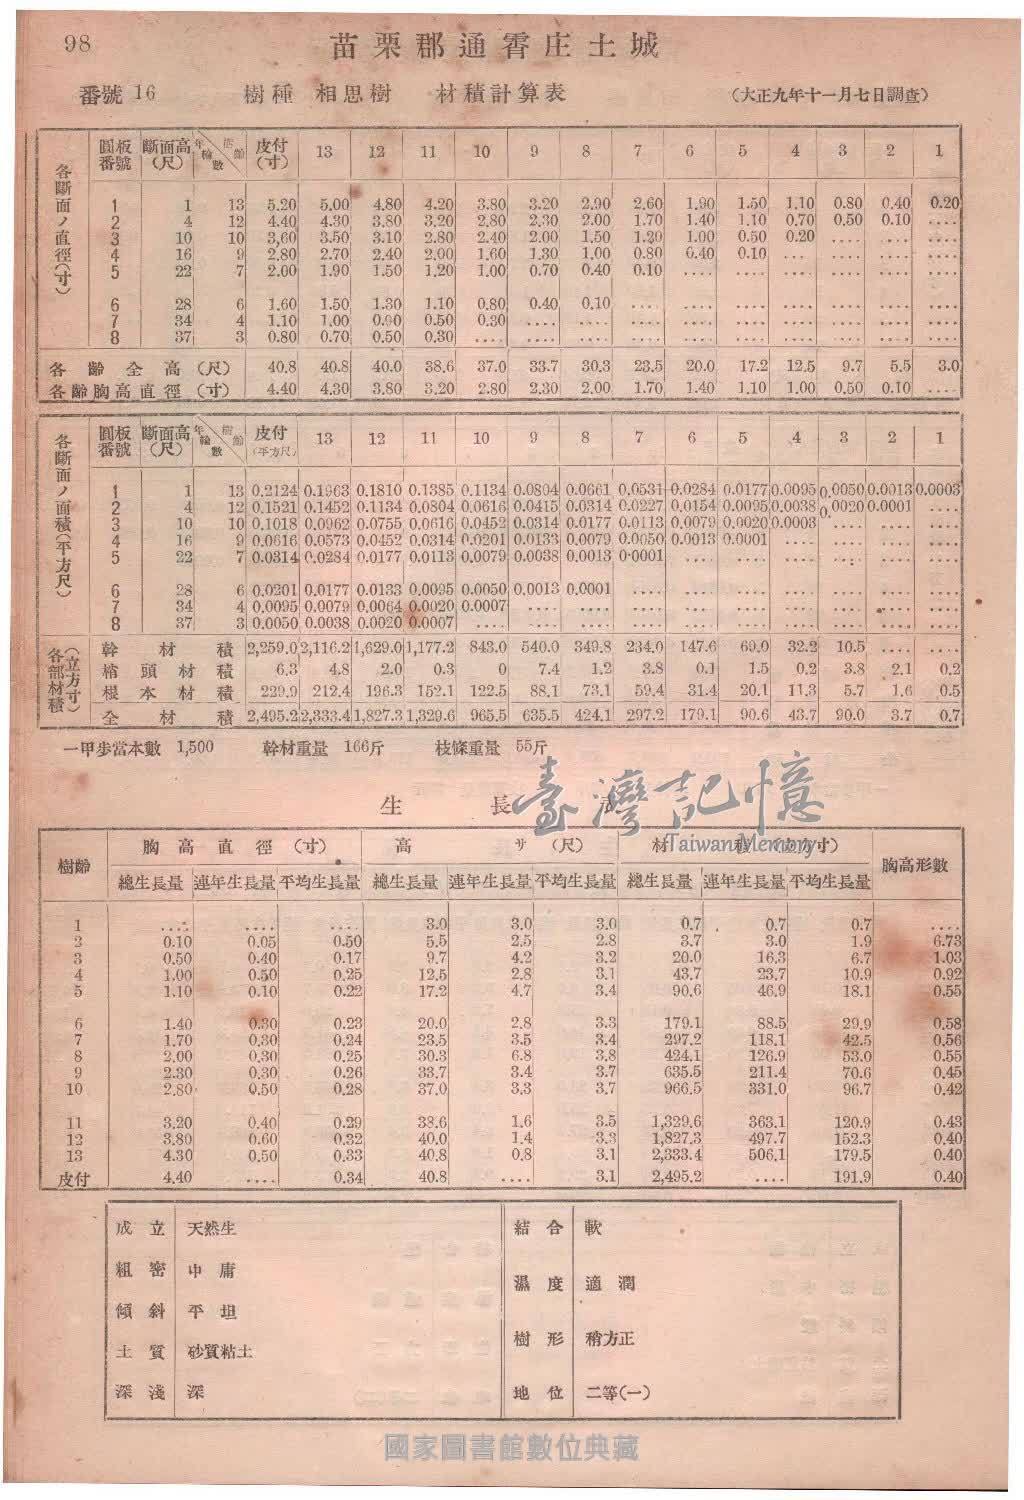 98
苗栗郡通霄庄土城
番號 16 樹種 相思樹 材積計算表 (大正九年十一月七日調査)
各斷面ノ直徑(寸)
圓板番號 斷面高(尺) 年輪數 樹齡 皮付(寸) 13 12 11 10 9 8 7 6 5 4 3 2 1
1 1 13 5.20 5.00 4.80 4.20 3.80 3.20 2.90 2.60 1.90 1.50 1.10 0.80 0.40 0.20
2 4 12 4.40 4.30 3.80 3.20 2.80 2.30 2.00 1.70 1.40 1.10 0.70 0.50 0.10 ....
3 10 10 3.60 3.50 3.10 2.80 2.40 2.00 1.50 1.20 1.00 0.50 0.20 .... .... ....
4 16 9 2.80 2.70 2.40 2.00 1.60 1.30 1.00 0.80 0.40 0.10 ... .... .... ....
5 22 7 2.00 1.90 1.50 1.20 1.00 0.70 0.40 0.10 .... .... .... .... .... ....
6 28 6 1.60 1.50 1.30 1.10 0.80 0.40 0.10 ... .... .... .... .... .... ....
7 34 4 1.10 1.00 0.90 0.50 0.30 .... .... .... .... .... .... .... .... ....
8 37 3 0.80 0.70 0.50 0.30 .... .... .... .... .... .... .... .... .... ....
各齡全高(尺) 40.8 40.8 40.0 38.6 37.0 33.7 30.3 23.5 20.0 17.2 12.5 9.7 5.5 3.0
各齡胸高直徑(寸) 4.40 4.30 3.80 3.20 2.80 2.30 2.00 1.70 1.40 1.10 1.00 0.50 0.10 ....
各斷面ノ面積(平方尺)
圓板番號 斷面高(尺) 年輪數 樹齡 皮付(平方尺) 13 12 11 10 9 8 7 6 5 4 3 2 1
1 1 13 0.2124 0.1963 0.1810 0.1385 0.1134 0.0804 0.0661 0.0531 0.0284 0.0177 0.0095 0.0050 0.0013 0.0003
2 4 12 0.1521 0.1452 0.1134 0.0804 0.0616 0.0415 0.0314 0.0227 0.0154 0.0095 0.0038 0.0020 0.0001 ....
3 10 10 0.1018 0.0962 0.0755 0.0616 0.0452 0.0314 0.0177 0.0113 0.0079 0.0020 0.0003 .... .... ....
4 16 9 0.0616 0.0573 0.0452 0.0314 0.0201 0.0133 0.0079 0.0050 0.0013 0.0001 .... .... .... ....
5 22 7 0.0314 0.0284 0.0177 0.0113 0.0079 0.0038 0.0013 0.0001 .... .... .... .... .... ....
6 28 6 0.0201 0.0177 0.0133 0.0095 0.0050 0.0013 0.0001 .... .... .... .... .... .... ....
7 34 4 0.0095 0.0079 0.0064 0.0020 0.0007 .... .... .... .... .... .... .... .... ....
8 37 3 0.0050 0.0038 0.0020 0.0007 .... .... .... .... .... .... .... .... .... ....
各部材積(立方寸)
幹材積 2,259.0 2,116.2 1,629.0 1,177.2 843.0 540.0 349.8 234.0 147.6 69.0 32.2 10.5 .... ....
梢頭材積 6.3 4.8 2.0 0.3 0 7.4 1.2 3.8 0.1 1.5 0.2 3.8 2.1 0.2
根本材積 229.9 212.4 196.3 152.1 122.5 88.1 73.1 59.4 31.4 20.1 11.3 5.7 1.6 0.5
全材積 2,495.2 2,333.4 1,827.3 1,329.6 965.5 635.5 424.1 297.2 179.1 90.6 43.7 90.0 3.7 0.7
一甲歩當本數 1,500 幹材重量 166斤 枝條重量 55斤
臺灣記憶
Taiwan Memory
生長
樹齡 胸高直徑(寸) 高サ(尺) 材積(立方寸) 胸高形數
總生長量 連年生長量 平均生長量 總生長量 連年生長量 平均生長量 總生長量 連年生長量 平均生長量
1 .... .... .... 3.0 3.0 3.0 0.7 0.7 0.7 ....
2 0.10 0.05 0.50 5.5 2.5 2.8 3.7 3.0 1.9 6.73
3 0.50 0.40 0.17 9.7 4.2 3.2 20.0 16.3 6.7 1.03
4 1.00 0.50 0.25 12.5 2.8 3.1 43.7 23.7 10.9 0.92
5 1.10 0.10 0.22 17.2 4.7 3.4 90.6 46.9 18.1 0.55
6 1.40 0.30 0.23 20.0 2.8 3.3 179.1 88.5 29.9 0.58
7 1.70 0.30 0.24 23.5 3.5 3.4 297.2 118.1 42.5 0.56
8 2.00 0.30 0.25 30.3 6.8 3.8 424.1 126.9 53.0 0.55
9 2.30 0.30 0.26 33.7 3.4 3.7 635.5 211.4 70.6 0.45
10 2.80 0.50 0.28 37.0 3.3 3.7 966.5 331.0 96.7 0.42
11 3.20 0.40 0.29 38.6 1.6 3.5 1,329.6 363.1 120.9 0.43
12 3.80 0.60 0.32 40.0 1.4 3.3 1,827.3 497.7 152.3 0.40
13 4.30 0.50 0.33 40.8 0.8 3.1 2,333.4 506.1 179.5 0.40
皮付 4.40 .... 0.34 40.8 .... 3.1 2,495.2 .... 191.9 0.40
成立 天然生 結合 軟
粗密 中庸 濕度 適潤
傾斜 平坦 樹形 稍方正
土質 砂質粘土 地位 二等(一)
深淺 深
國家圖書館數位典藏